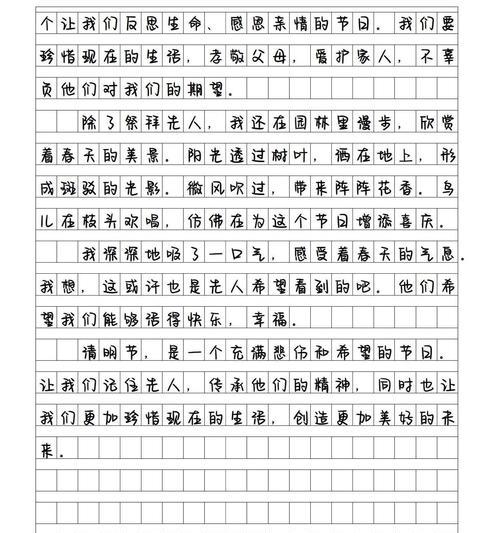 个让我们反思生命、感恩亲情的节日。我们要
珍惜现在的生活，孝敬父母，爱护家人，不辜
负他们对我们的期望。
除了祭拜先人，我还在园林里漫步，欣赏
着春天的美景。阳光透过树叶，洒在地上，形
成斑驳的光影。微风吹过，带来阵阵花香。鸟
儿在枝头欢唱，仿佛在为这个节日增添喜庆。
我深深地吸了一口气，感受着春天的气息。
我想，这或许也是先人希望看到的吧。他们希
望我们能够活得快乐，幸福。
清明节，是一个充满悲伤和希望的节日。
让我们记住先人，传承他们的精神，同时也让
我们更加珍惜现在的生活，创造更加美好的未
来。